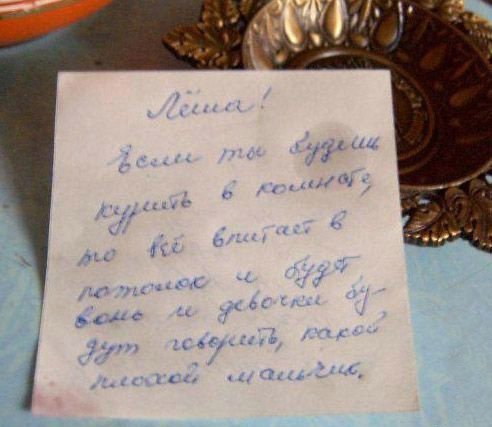 Лёша!
Если ты будешь
курить в комнате,
то всё впитает в
потолок и будет
вонь и девочки бу-
дут говорить, какой
плохой мальчик.